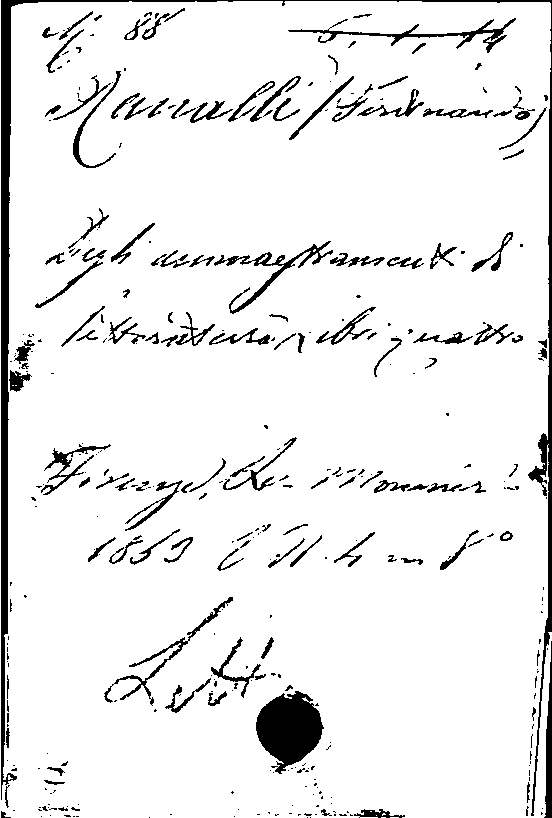 M. 88 6, 1, 14
Ranalli (Ferdinando)
Degli ammaestramenti di
letteratura, Libri quattro
Firenze, Le Monnier
1863 V. 4 in 8°
Lett.